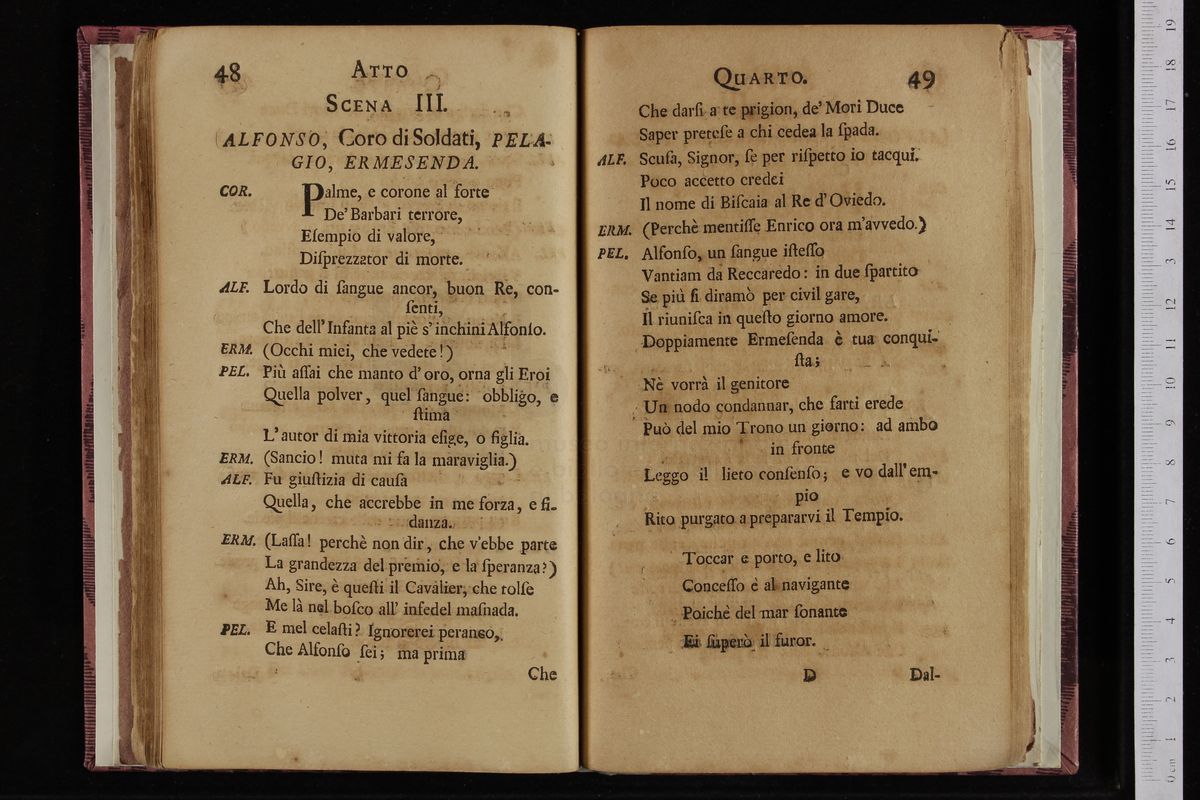 48 ATTO
SCENA III.
ALFONSO, Coro di Soldati, PELA-
GIO, ERMESENDA.
COR. Palme, e corone al forte
De' Barbari terrore,
Eſempio di valore,
Diſprezzator di morte.
ALF. Lordo di ſangue ancor, buon Re, con-
ſenti,
Che dell' Infanta al piè s' inchini Alfonſo.
ERM. (Occhi miei, che vedete!)
PEL. Più aſſai che manto d' oro, orna gli Eroi
Quella polver, quel ſangue: obbligo, e
ſtima
L' autor di mia vittoria eſige, o figlia.
ERM. (Sancio! muta mi fa la maraviglia.)
ALF. Fu giuſtizia di cauſa
Quella, che accrebbe in me forza, e fi-
danza.
ERM. (Laſſa! perchè non dir, che v'ebbe parte
La grandezza del premio, e la ſperanza?)
Ah, Sire, è queſti il Cavalier, che tolſe
Me là nel boſco all' infedel maſnada.
PEL. E mel celaſti? Ignorerei peranco,
Che Alfonſo ſei; ma prima
Che
QUARTO. 49
Che darſi a te prigion, de' Mori Duce
Saper preteſe a chi cedea la ſpada.
ALF. Scuſa, Signor, ſe per riſpetto io tacqui.
Poco accetto credei
Il nome di Biſcaia al Re d' Oviedo.
ERM. (Perchè mentiſſe Enrico ora m'avvedo.)
PEL. Alfonſo, un ſangue iſteſſo
Vantiam da Reccaredo: in due ſpartito
Se più ſi diramò per civil gare,
Il riuniſca in queſto giorno amore.
Doppiamente Ermeſenda è tua conqui-
ſta;
Nè vorrà il genitore
Un nodo condannar, che farti erede
Può del mio Trono un giorno: ad ambo
in fronte
Leggo il lieto conſenſo; e vo dall' em-
pio
Rito purgato a prepararvi il Tempio.
Toccar e porto, e lito
Conceſſo è al navigante
Poichè del mar ſonante
Ei ſuperò il furor.
D Dal-
0 cm 1 2 3 4 5 6 7 8 9 10 11 12 13 14 15 16 17 18 19